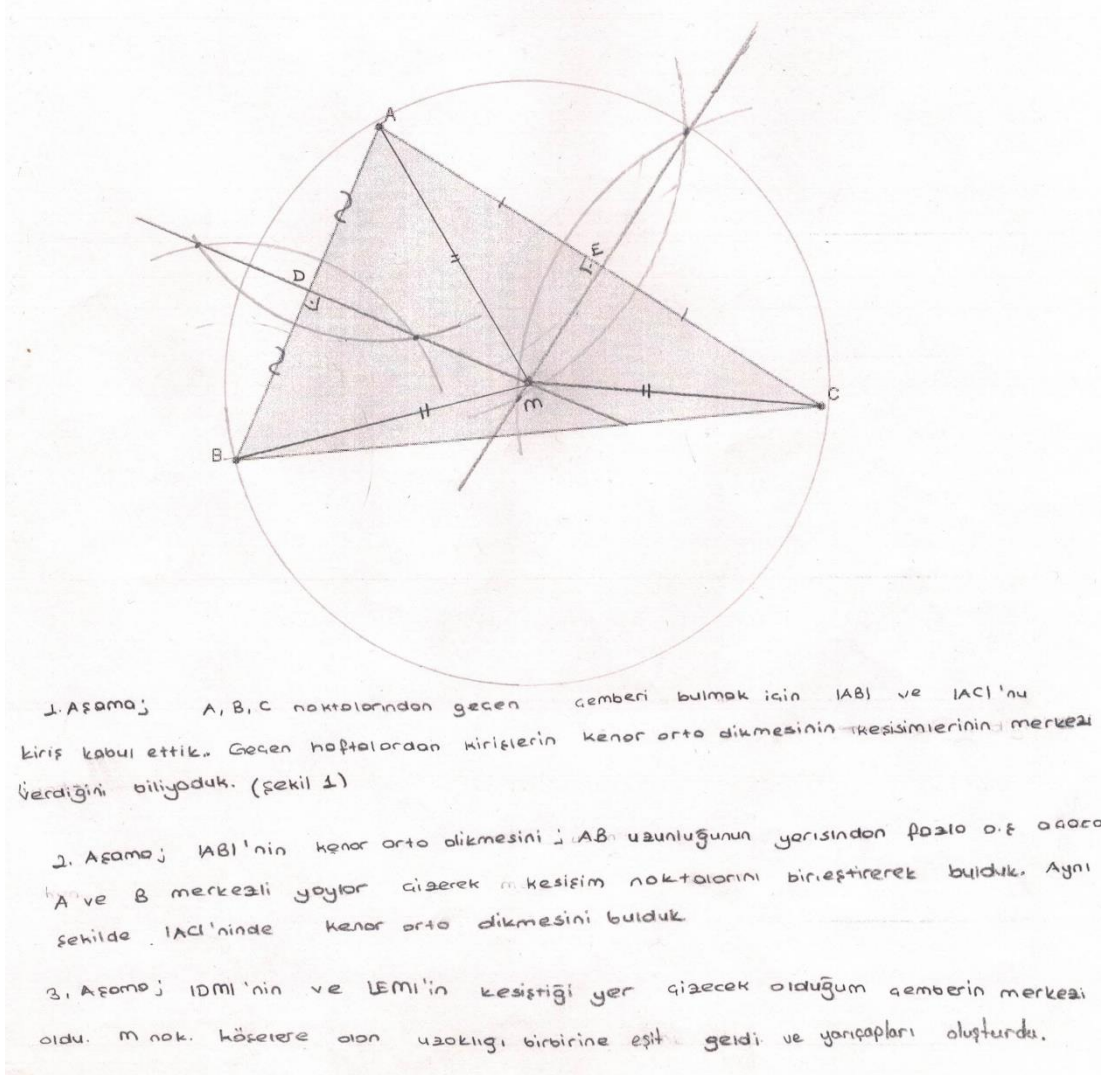 A
E
D
m
C
B
1. Aşama; A, B, C noktalarından geçen çemberi bulmak için |AB| ve |AC|'nu
kiriş kabul ettik.. Geçen haftalardan kirişlerin kenar orta dikmesinin kesişimlerinin merkezi
verdiğini biliyoduk. (Şekil 1)
2. Aşama; |AB|'nin kenar orta dikmesini; AB uzunluğunun yarısından fazla
A ve B merkezli yaylar çizerek kesişim noktalarını birleştirerek bulduk. Aynı
şekilde |AC|'ninde kenar orta dikmesini bulduk
3. Aşama; |DM|'nin ve |EM|'in kesiştiği yer çizecek olduğum çemberin merkezi
oldu. m nok. köşelere olan uzaklığı birbirine eşit geldi ve yarıçapları oluşturdu.